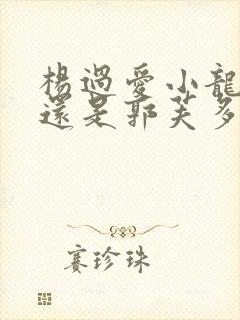 楊過愛小龍
還是郭芙多
賽珍珠